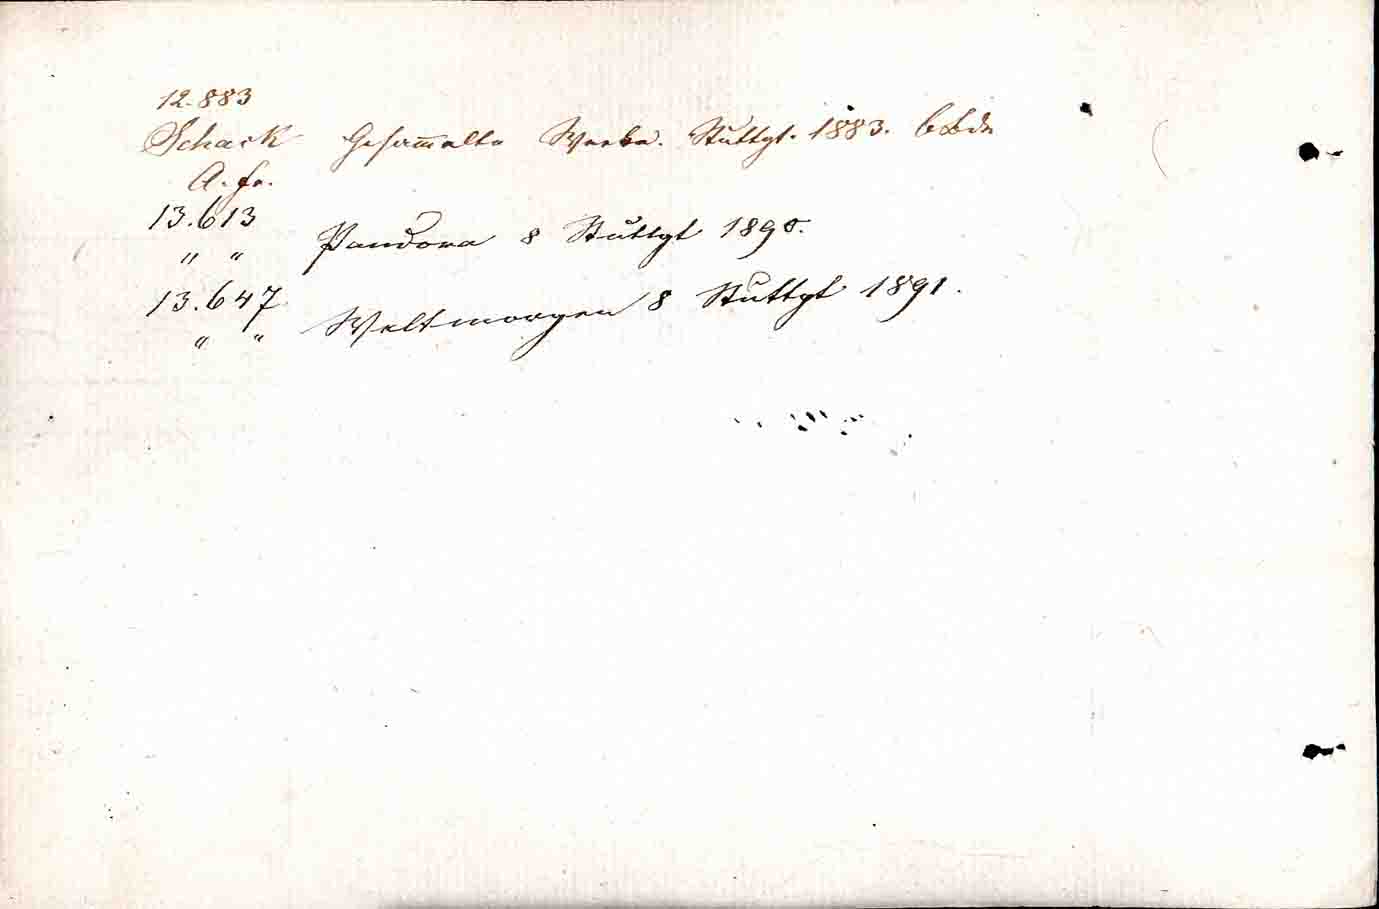 12.883
Schack Gesam̅elte Werke. Stuttgt. 1883. 6 Bde
A. Fr.
13.613
" " Pandora 8 Stuttgt 1890.
13.647
" " Weltmorgen 8 Stuttgt 1891.